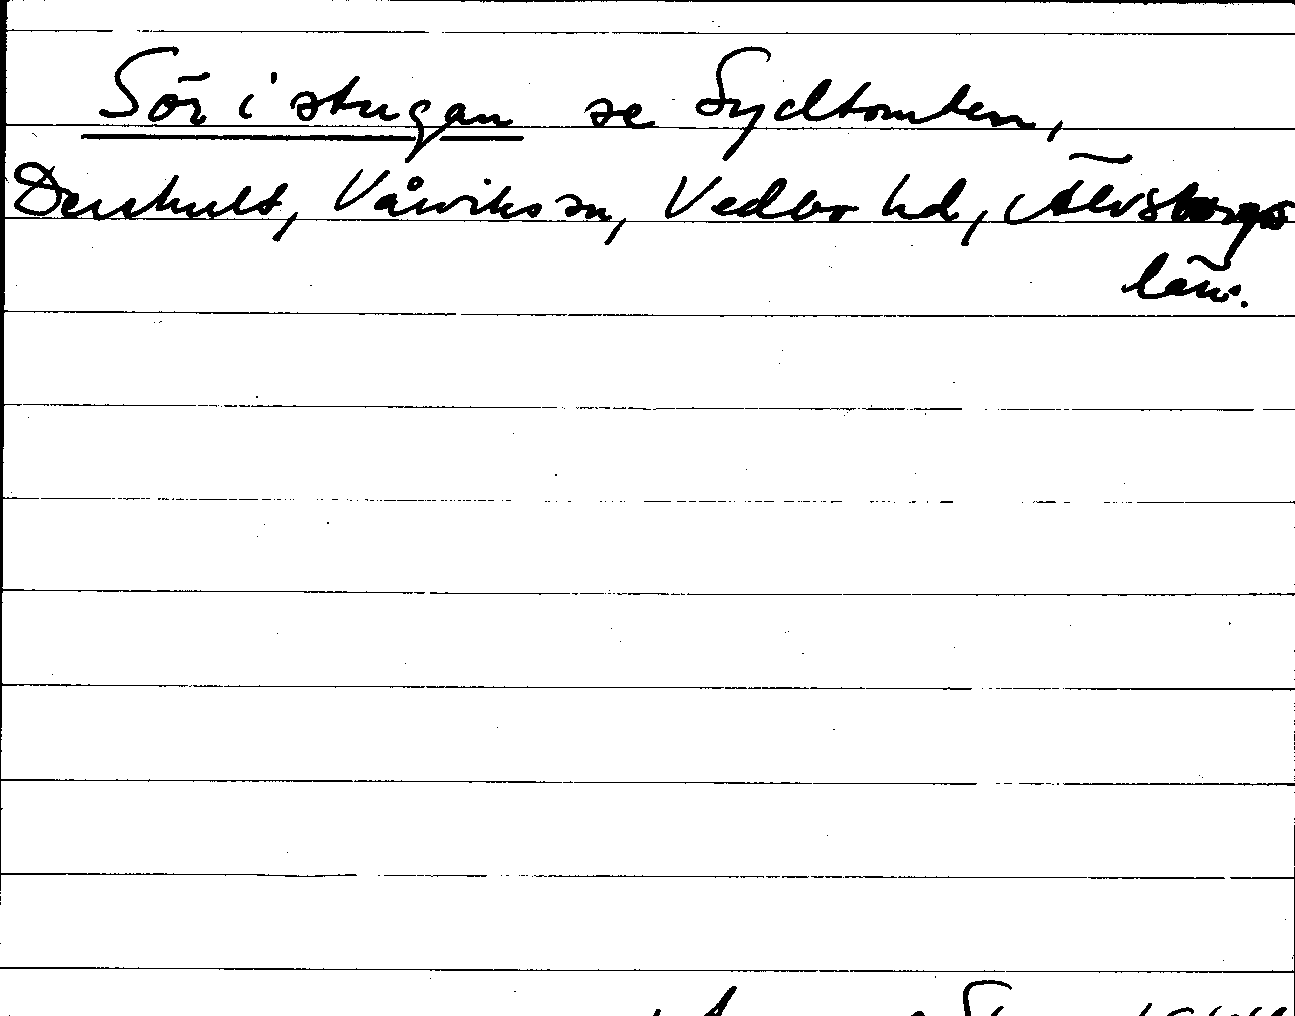 Sör i stugan se Sydtomten,
Dershult, Vårviks sn, Vedbo hd, Älvsborgs
län.